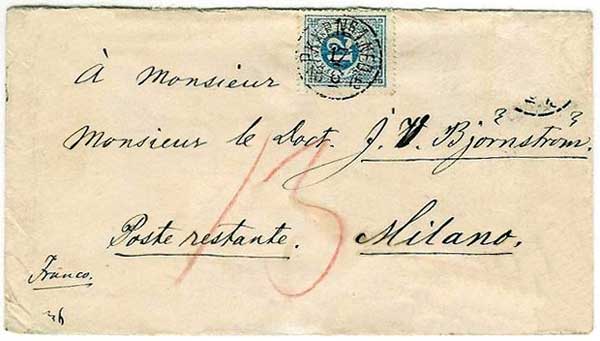 À Monsieur
Monsieur le Doct. J. V. Björnström.
Poste restante. Milano.
Franco.
13